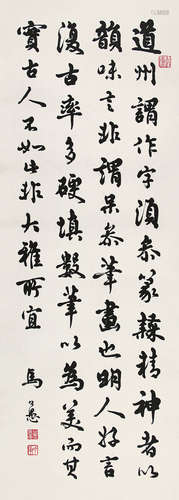 道州謂作字須參篆隸精神者以
韻味言非謂呆參筆畫也明人好言
復古率多硬填數筆以為美而其
實古人不如此非大雅所宜
馬公愚